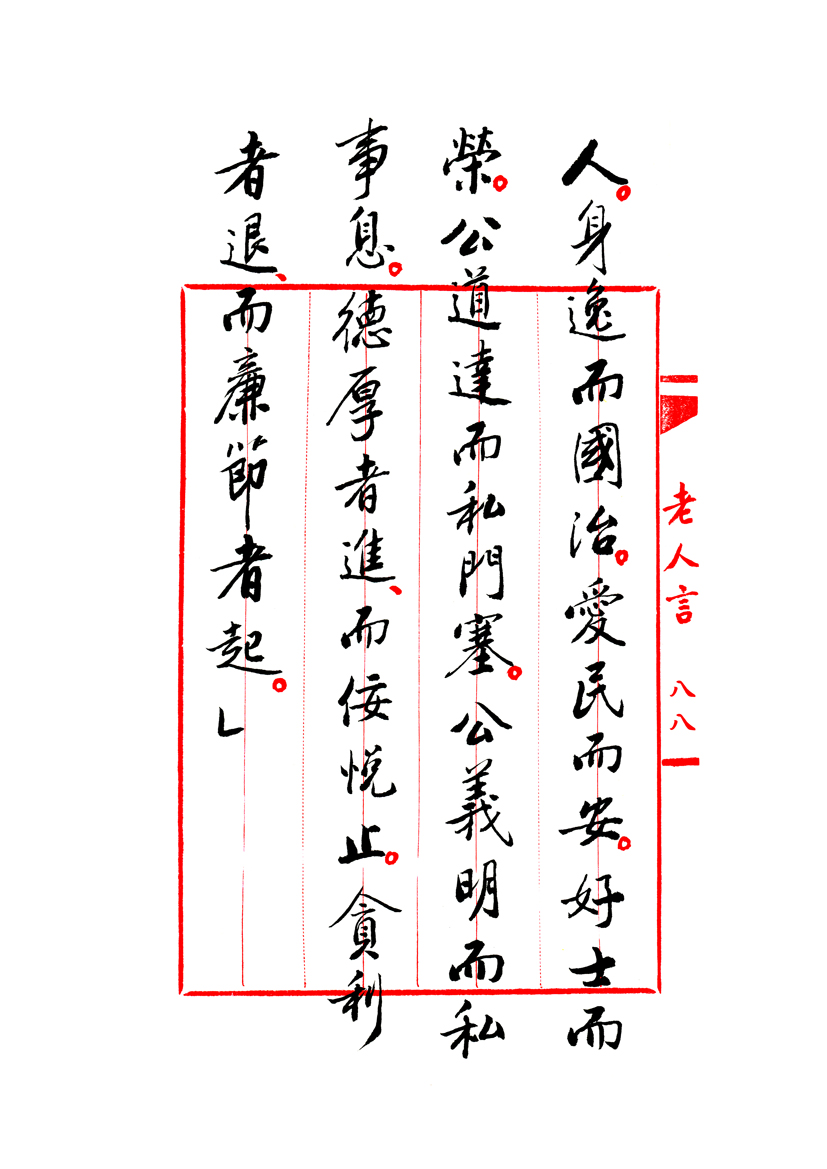 人。身逸而國治。愛民而安。好士而
榮。公道達而私門塞。公義明而私
事息。德厚者進、而佞悅止。貪利
者退、而廉節者起。」
老人言 八八